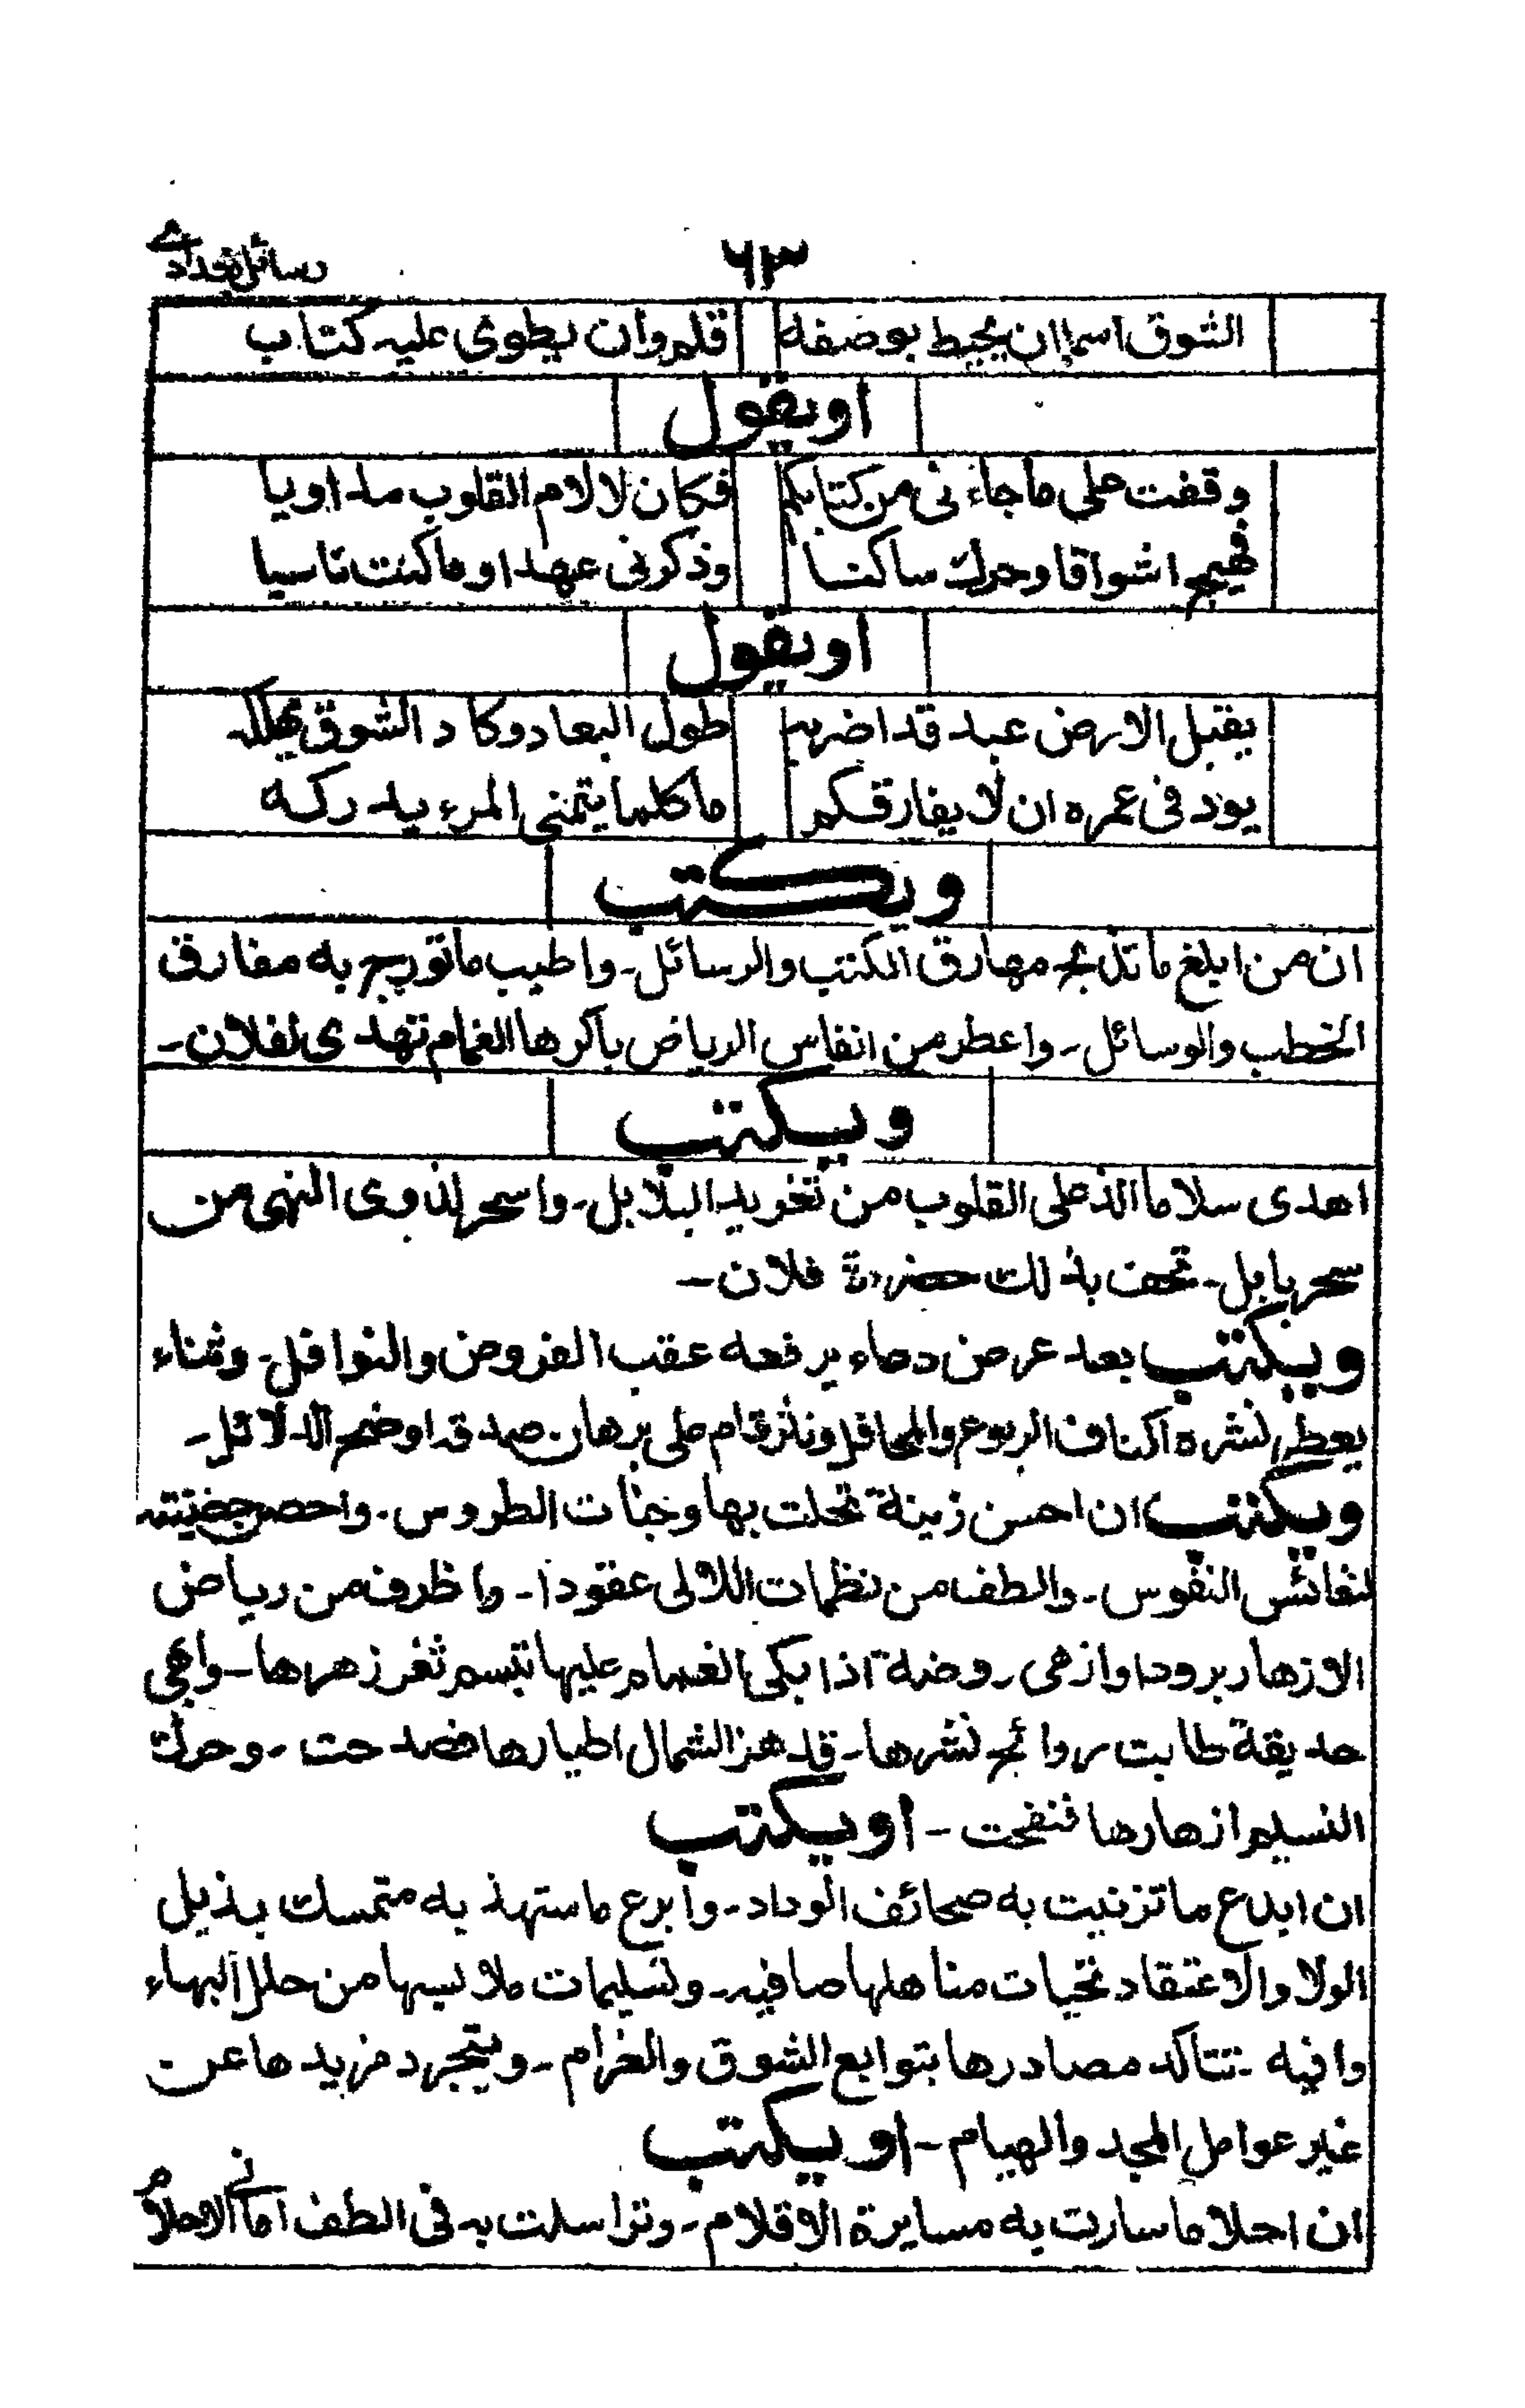 رسائل بغدادے
٦١٣
الشوق اسما ان یحیط بوصفه قلم وان یطوی علیه کتاب
او یقول
وقفت علی ما جاء نی من کتابکم فکان لالام القلوب مداویا
فهیج اشواقا وحرك ساکنا وذکرنی عهدا وما کنت ناسیا
او یقول
یقبل الارض عبد قد اضر به طول البعاد وکا د الشوق یهلکه
یود فی عمره ان لا یفارقکم ما کلما یتمنی المرء یدرکه
ویکتب
ان من ابلغ ما تذبجه مهارق الکتب والرسائل۔ واطیب ما تتوج به مفارق
الخطب والوسائل۔ واعطر من انفاس الریاض باکرها الغمام تهدی لفلان۔
ویکتب
اهدی سلاما الذ علی القلوب من تغرید البلابل۔ واسحر لذوی النهی من
سحر بابل۔ تحف بذلك حضرة فلان۔
ویکتب بعد عرض دعاء یرفعه عقب الفروض والنوافل۔ وثناء
یعطر نشره اکناف الربوع والمحافل ونثر قام علی برهان صدقه اوضح الدلائل۔
ویکتب ان احسن زینة تحلت بها وجنات الطروس۔ واحصر
لنفائس النفوس۔ والطف من نظمات اللالی عقودا۔ واظرف من ریاض
الازهار برودا وازهی روضة اذا بکی الغمام علیها تبسم ثغر زهرها۔ وابهی
حدیقة طابت روائح نشرها۔ قد هز الشمال اطیارها فصدحت۔ وحرك
النسیم ازهارها فنفحت۔ او یکتب
ان ابدع ما تزینت به صحائف الوداد۔ وابرع ما ستهذ به متمسك بذیل
الولا والاعتقاد تحیات مناهلها صافیه۔ وتسلیمات ملابسها من حلل البهاء
وافیه۔ تتاکد مصادرها بتوابع الشوق والغرام۔ ویتجرد مزیدها عن
غیر عوامل المجد والهیام۔ او یکتب
ان احلا ما سارت به مسایرة الاقلام۔ وتراسلت به فی الطف امانی الاحلام